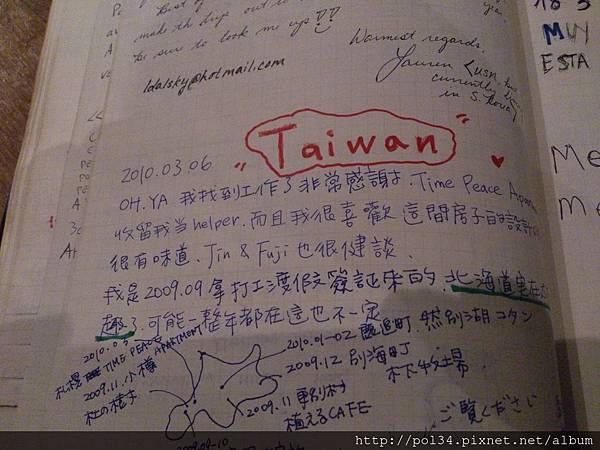 Best of
make the trip out to
Be sure to look me up!!
ldalsky@hotmail.com
Warmest regards,
Lauren (USA, but
currently
in S. Korea)
MUY
ESTA
"Taiwan"
2010.03.06
OH.YA 我找到工作了非常感謝 Time Peace
收留我当helper.而且我很喜歡這間房子的設計
很有味道. Jin & Fuji 也很健談、
我是2009.09拿打工渡假簽証來的.北海道実在太
趣了.可能一整年都在這也不一定
2010.03 TIME PEACE APARTMENT
札幌
2009.11. 小樽
杜の樹
2010.01-02 鹿追町.然別湖コタン
2009.12 別海町
木下牧場
2009.11 更別村
植えるCAFE
2009.09-10
ご覧ください
http://pol34.pixnet.net/album